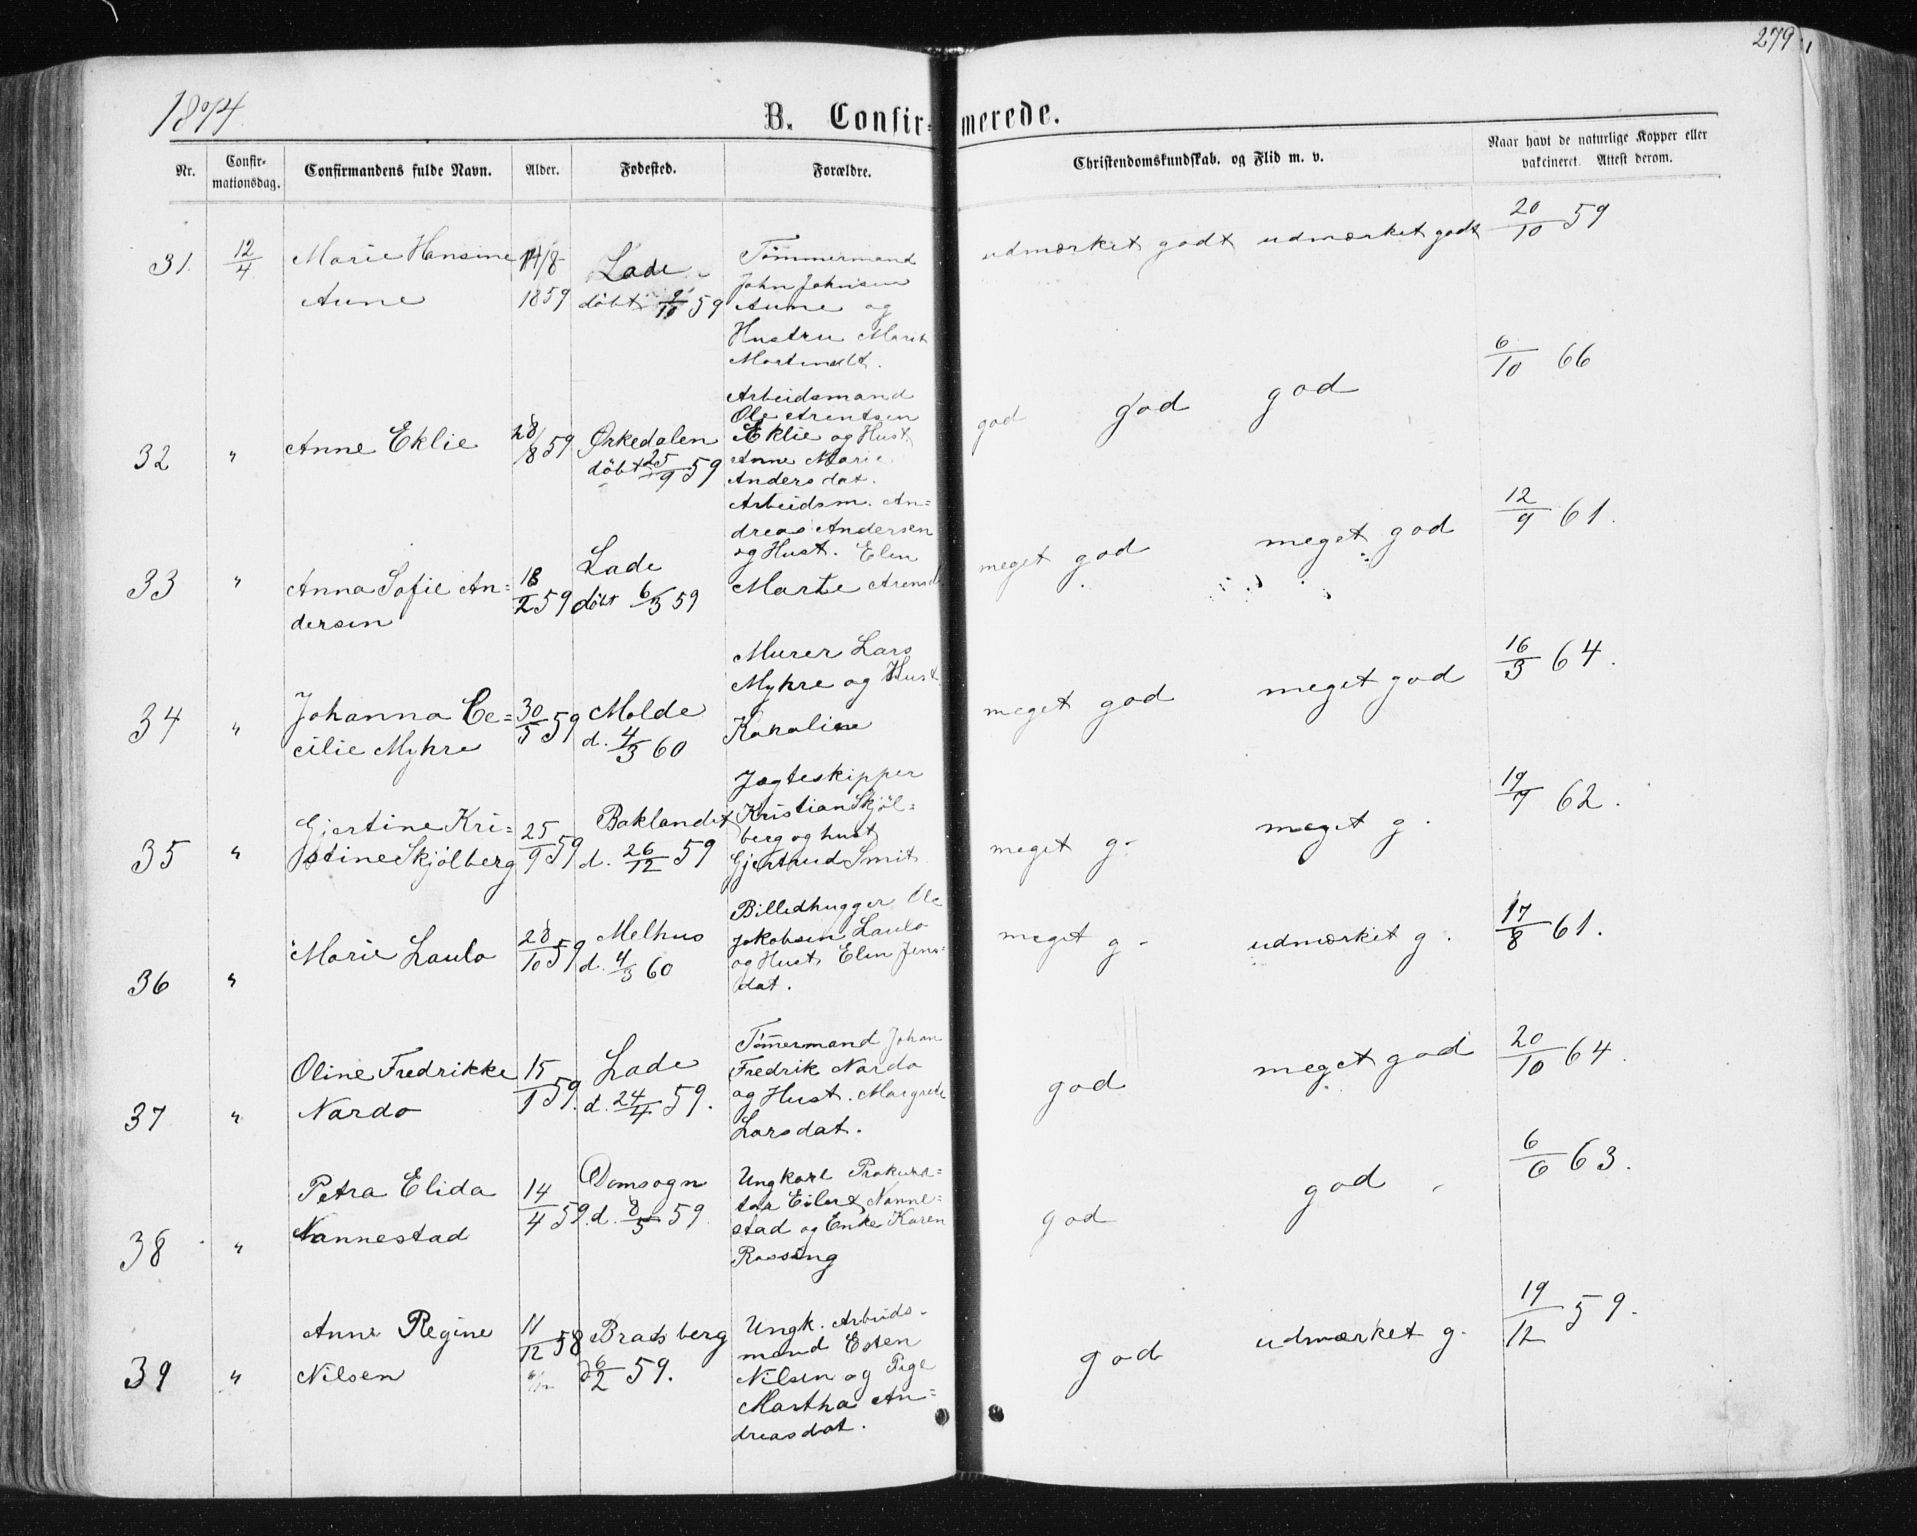 279
1874.
B. Confir-merede.
Nr.
Confir-
mationsdag.
Confirmandens fulde Navn.
Alder.
Fødested.
Forældre.
Christendomskundskab. og Flid m. v.
Naar havt de naturlige Kopper eller
vakcineret. Attest derom.
31. 12/4 Marie Hansine
Aune
14/8
1859
Lade
døbt 2/10 59
Tømmermand
John Johnsen
Aune og
Hustru Marit
udmærket godt udmærket godt 20/10 59
32 " Anne Eklie 28/8 59 Ørkedalen
døbt 25/9 59
Arbeidsmand
Ole Arentsen
Eklie og Hust.
Anne Marie
Andersdat.
god god god 6/10 66
33 " Anna Sofie An=
dersen
18/2 59
Lade
døbt 6/3 59
Arbeidsm. An=
dreas Andersen
og Hust. Elen
Marte
meget god meget god 12/9 61.
34 " Johanna Ce=
cilie Myhre
30/5 59
Molde
d. 4/3 60
Murer Lars
Myhre og Hust.
Karoline
meget god meget god 16/3 64.
35 " Gjertine Kri=
stine Skjølberg
25/9 59
Baklandet
d. 26/12 59
Jagteskipper
Kristian Skjøl=
berg og hust
Gjertrud Smit
meget g. meget g. 19/7 62.
36 " Marie Laulo
28/10 59
Melhus
d. 4/3 60
Billedhugger Ole
Jakobsen Laulo
og Hust. Elen Jens=
dat.
meget g. udmærket g. 17/8 61.
37 " Oline Fredrikke
Nardo
15/1 59.
Lade
d. 24/4 59.
Tømermand Johan
Fredrik Nardo
og Hust. Margrete
Larsdat.
god meget god 20/10 64.
38 " Petra Elida
Nannestad
14/4 59.
Domsogn
d. 8/5 59.
Ungkarl Prokura=
tor Eilert Nanne=
stad og Enke Karen
Rossing
god god 6/6 63.
39 " Anne Regine
Nilsen
11/12 58
Bratsberg
d 6/2 59.
Ungk. Arbeids=
mand Esten
Nilsen og Pige
Martha An=
dreasdat.
god udmærket g. 19/12 59.